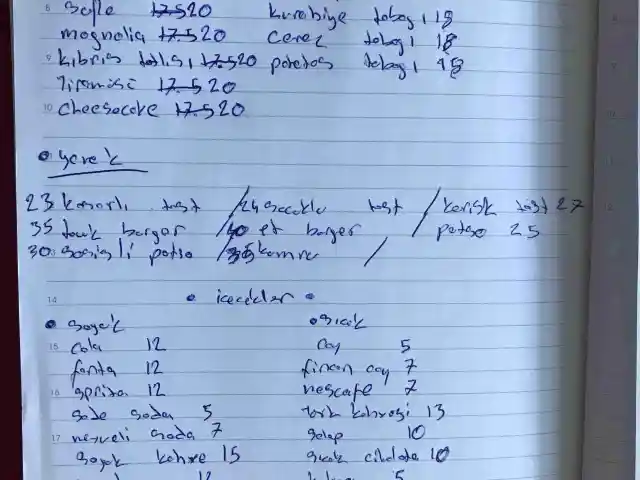 sufle 17.5 20 kurabiye tabagı 18
magnolia 17.5 20 cerez tabagı 18
kıbrıs tatlısı 17.5 20 patates tabagı 18
Tiramisi 17.5 20
cheesecake 17.5 20
23 kasarlı tost / 24 sucuklu tost / karisik tost 27
35 tavuk burger / 40 et burger / patso 25
30 sosisli patso / 35 kumru /
• icecekler •
• soguk • sıcak
cola 12 cay 5
fanta 12 fincan cay 7
sprite 12 nescafe 7
sade soda 5 türk kahvesi 13
meyveli soda 7 salep 10
soguk kahve 15 sıcak cikolata 10
12 5